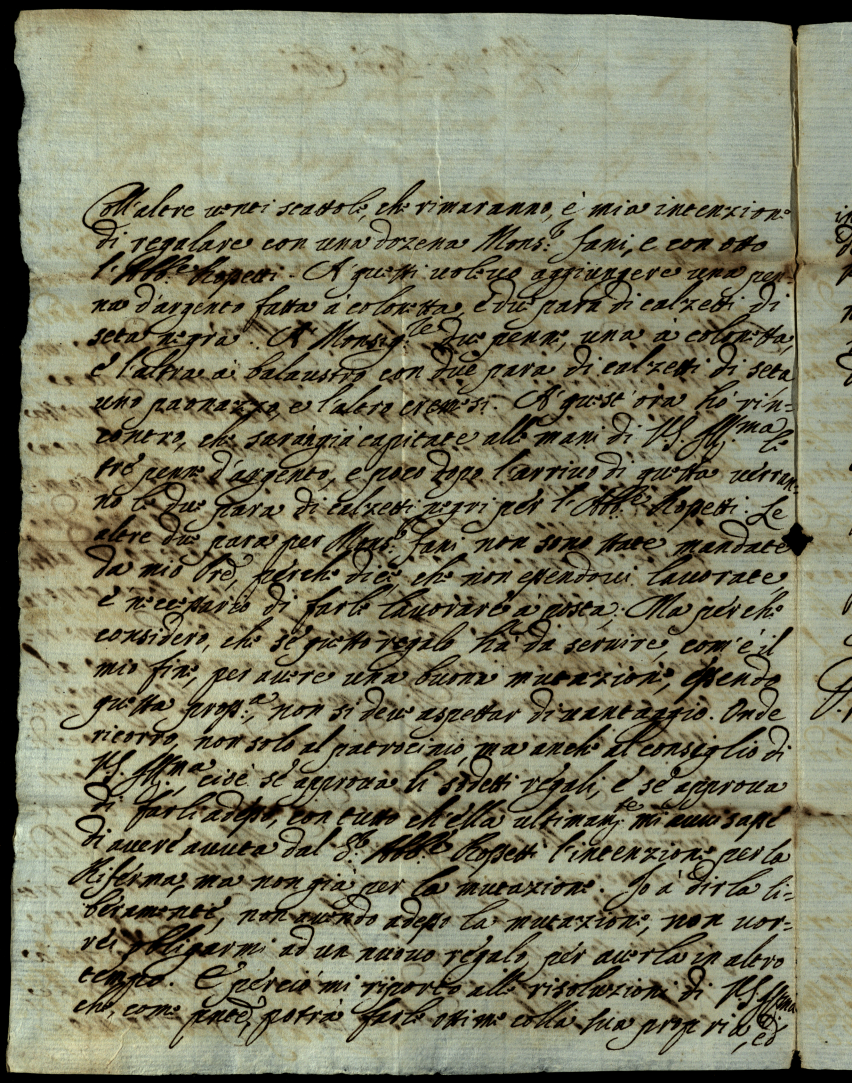 Coll'altre venti scattole, che rimaranno, è mia intenzione
di regalare con una dozena Mons.r Fani, e con otto
l'Abb.e Rossetti. A questi volevo aggiungere una pen-
na d'argento fatta à colonetta, e due para di calzetti di
seta negra. A Monsig.re due penne, una a colonetta,
e l'altra à balaustro con due para di calzetti di seta
uno paonazzo, e l'altro cremesi. A quest'ora hò rin-
contro, che saran già capitate alle mani di V.S. Ill.ma le
trè penne d'argento, e poco dopo l'arrivo di questa verran-
no le due para di calzetti negri per l'Abb.e Rossetti. Le
altre due para per Mons.r Fani non sono state mandate
da mio Pre, perche dice che non essendovi lavorate,
è necessario di farle lavorare à posta. Ma perche
considero, che se questo regalo ha da servire, com'è il
mio fine, per avere una buona mutazione, essendo
questa pross.a, non si deve aspettar di vantaggio. Onde
ricorro, non solo al patrocinio, ma anche al consiglio di
V.S. Ill.ma, cioè se approva li sodetti regali, e se approva
di farli adesso, con tutto ch'ella ultimam.te mi avvisasse
di avere avuta dal S.r Abb.e Rossetti l'intenzione per la
Riferma, ma non già per la mutazione. Io à dirla li-
beramente, non avendo adesso la mutazione, non vor-
rei obligarmi ad un nuovo regalo, per averla in altro
tempo. E perciò mi riporto alle risoluzioni di V.S. Ill.ma
che, come prudē, potrà farle ottime colla sua propria, ed